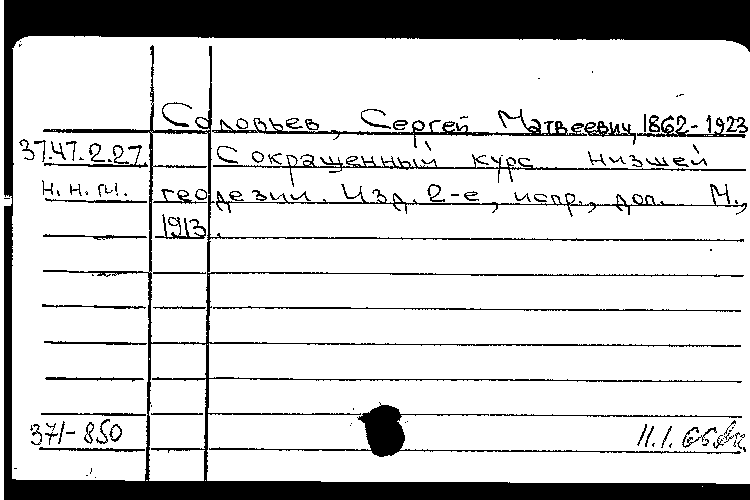 Соловьев, Сергей Матвеевич, 1862-1923
37.47.2.27. Сокращенный курс низшей
геодезии. Изд. 2-е, испр., доп. М.,
1913.
371-850
11.1.66